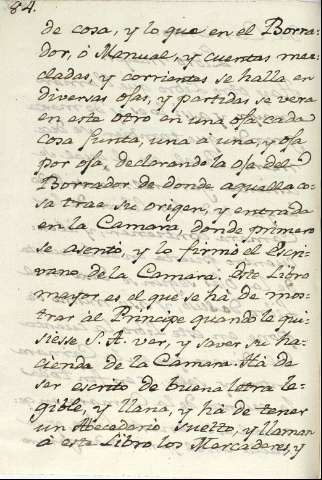 84.
de cosa, y lo que en el Borra-
dor, ó Manual, y cuentas mez-
cladas, y corrientes se halla en
diversas ojas, y partidas se vera
en este otro en una oja cada
cosa junta, una á una, y oja
por oja, declarando la oja del
Borrador de donde aquella co-
sa trae su origen, y entrada
en la Camara, donde primero
se asentó, y lo firmó el Escri-
vano de la Camara. Este Libro
mayor es el que se há de mos-
trar al Principe quando le qui-
siesse S. A. ver, y saver su ha-
cienda de la Camara. Há de
ser escrito de buena letra le-
gible, y llana, y há de tener
un Abecedario suelto, y llaman
á este Libro los Mercaderes, y